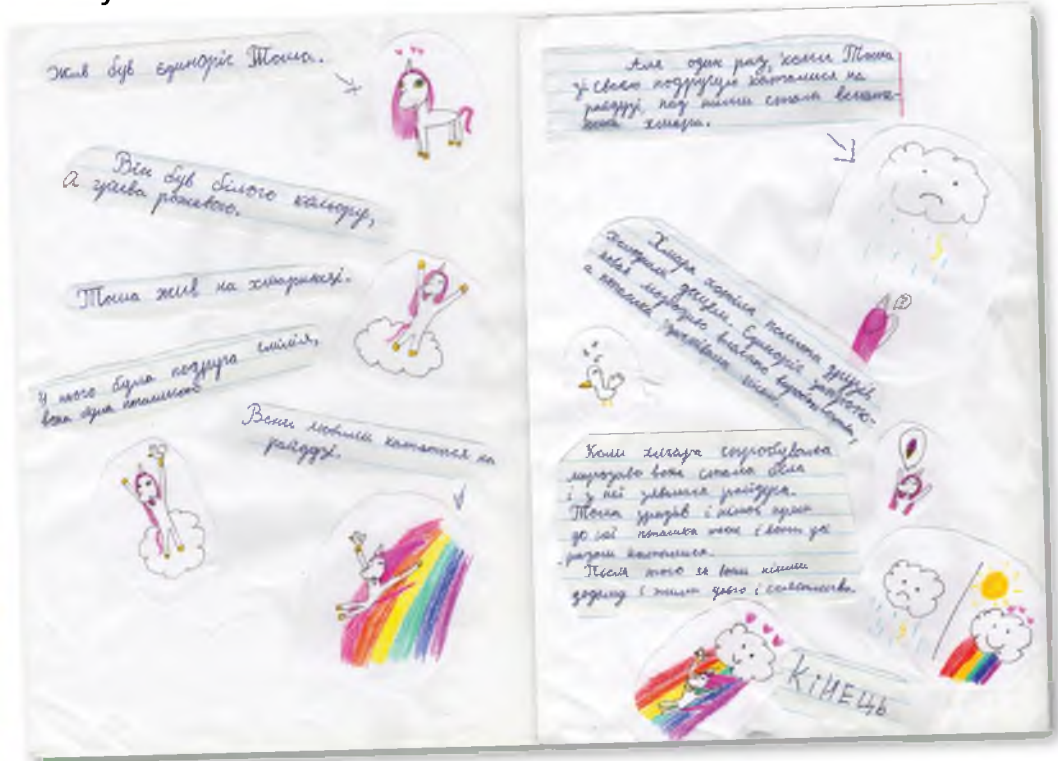 Жив був єдиноріг Тоша.
Він був білого кольору,
а грива рожевого.
Тоша жив на хмаринці.
У нього була подруга Емілія,
вона була пташкою
Вони любили кататися на
райдузі.
Але один раз, коли Тоша
зі своєю подругою каталися на
райдузі, над ними стала
хмара.
Хмара хотіла полити друзів
холодним дощем. Єдиноріг
морозиво
а пташка
Коли хмара спробувала
морозиво вона стала біла
і з неї з'явилася райдуга.
Тоша зрадів і пішов прямо
до неї пташка теж і вони
разом каталися.
Після того як вони пішли
додому і жили довго і щасливо.
КІНЕЦЬ